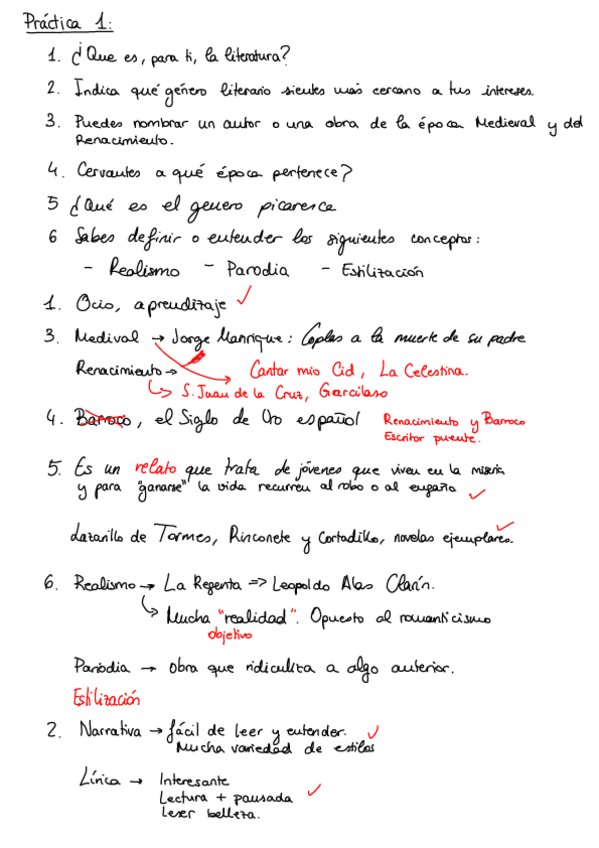 Práctica 1:
1. ¿Que es, para ti, la literatura?
2. Indica qué género literario sientes más cercano a tus intereses.
3. Puedes nombrar un autor o una obra de la época Medieval y del
Renacimiento.
4. Cervantes a qué época pertenece?
5 ¿Qué es el genero picaresca
6 Sabes definir o entender los siguientes conceptos:
- Realismo - Parodia - Estilización
1. Ocio, aprendizaje ✓
3. Medival → Jorge Manrique: Coplas a la muerte de su padre
Renacimiento → Cantar mio Cid, La Celestina.
↳ S. Juan de la Cruz, Garcilaso
4. Barroco, el Siglo de Oro español Renacimiento y Barroco
Escritor puente.
5. Es un relato que trata de jóvenes que viven en la miseria
y para "ganarse" la vida recurren al robo o al engaño ✓
Lazarillo de Tormes, Rinconete y Cortadillo, novelas ejemplares. ✓
6. Realismo → La Regenta => Leopoldo Alas Clarín.
↳ Mucha "realidad". Opuesto al romanticismo
objetivo
Parodia → Obra que ridiculiza a algo anterior.
Estilización
2. Narrativa → fácil de leer y entender. ✓
Mucha variedad de estilos
Lírica → Interesante
Lectura + pausada ✓
Leer belleza.